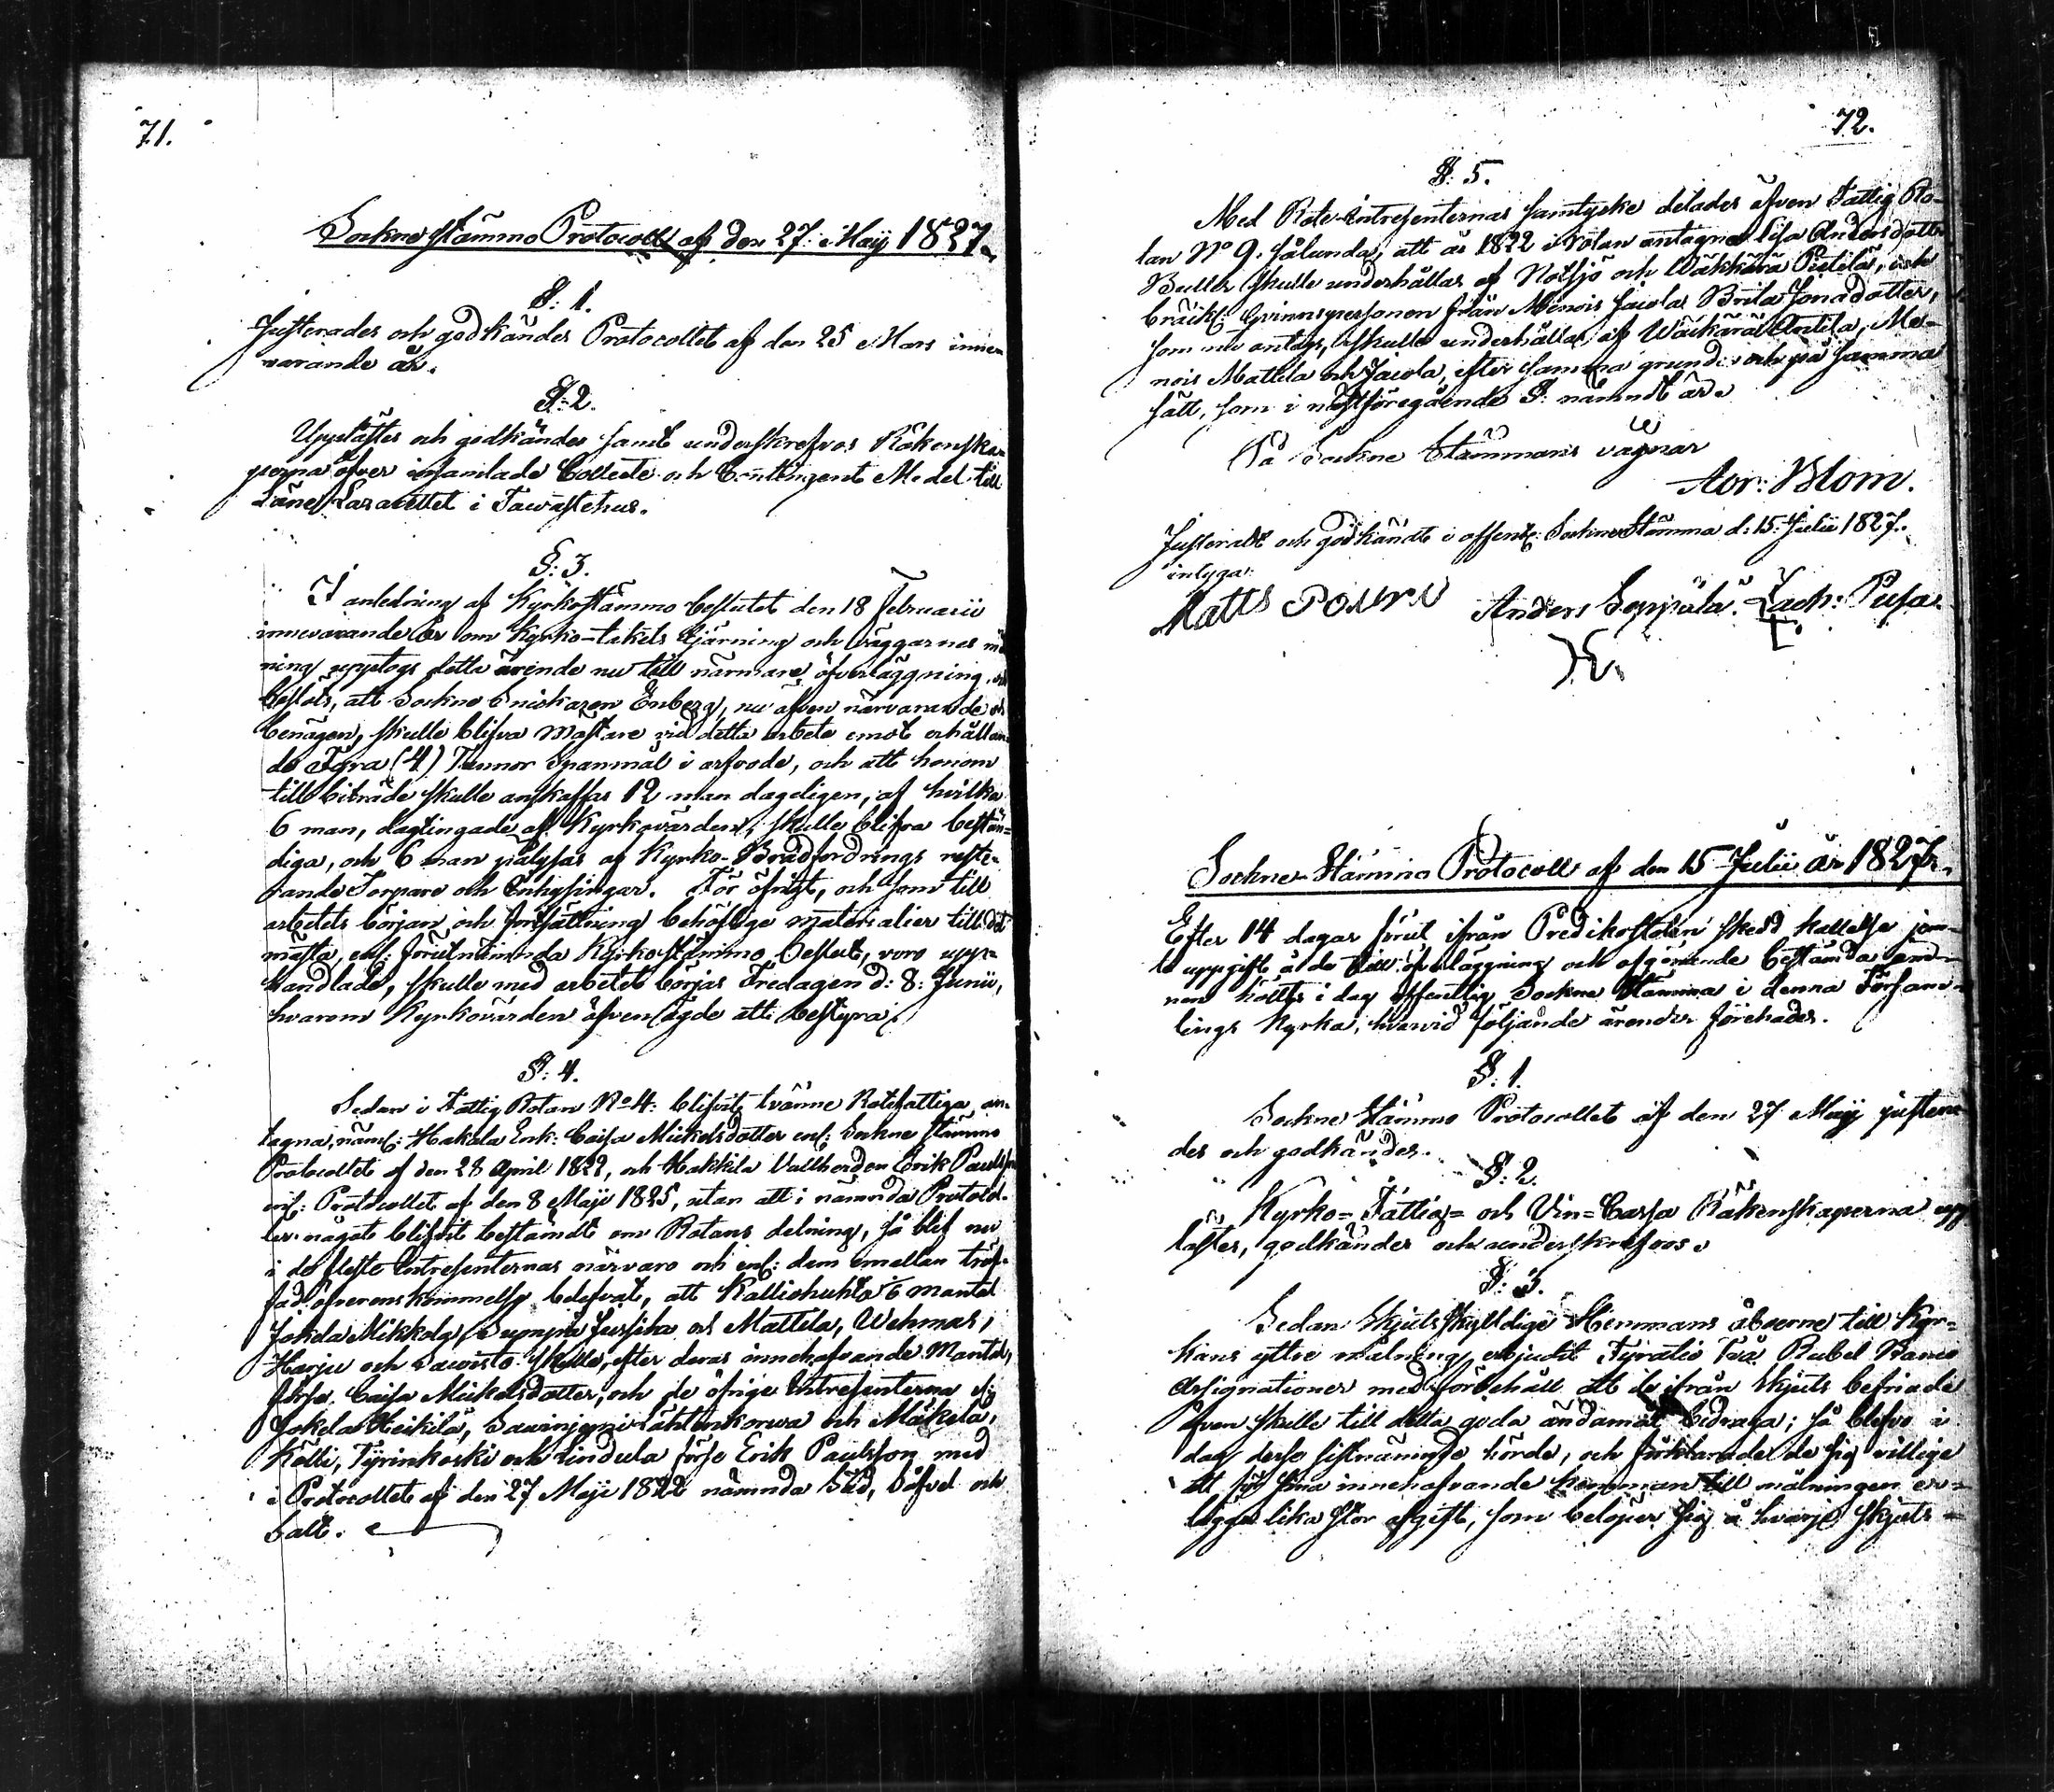 71.
Sockne Stämmo Protocoll af den 27: Maij 1827.
§: 1.
Justerades och godkändes Protocollet af den 25 Mars inne-
varande år.
§: 2.
Upplästes och godkändes samt underskrefvos Räkenska-
perna öfver insamlade Collecte och Contingent Medel till
Läne Lazarettet i Tawastehus.
§: 3.
I anledning af Kyrkostämmo beslutet den 18 Februarii
innevarande år om Kyrko-takets tjärning och väggarnes mål
ning upptogs detta ärende nu till närmare öfverläggning, och
beslöts, att Sockne Snickaren Enberg, nu äfven närvarande och
benägen, skulle blifva Mästare vid detta arbete emot erhållan-
de Fyra (4) Tunnor Spannmål i arfvode, och att honom
till biträde skulle anskaffas 12 man dageligen, af hvilka
6 man, daglingade af Kyrkovärden, skulle blifva bestän-
diga, och 6 man pålysas af Kyrko-Brädfordrings reste-
rande Torpare och Inhysingar. För öfrigt, och som till
arbetets början och fortsättning behöflige materialier till det
mästa, enl: förutnämnda Kyrkostämmo Beslut, voro upp-
handlade, skulle med arbetet börjas Fredagen d: 8: Junii,
hvarom Kyrkovärden äfven ägde att bestyra.
§: 4.
Sedan i Fattig Rotan No 4: blifvit tvänne Rotefattiga an-
tagna, näml: Hakala Enk: Caisa Mickelsdotter enl: Sockne Stämmo
Protocollet af den 28 April 1822, och Hakkila Vallherden Erik Paulsson
enl: Protocollet af den 8 Maji 1825, utan att i nämnda Protocol-
ler något blifvit bestämdt om Rotans delning, så blef nu
i de fleste Intressenternas närvaro och enl: dem emellan träf-
fad öfverenskommelse belefvat, att Kalliohuhta 1/6 mantal
Jokela Mikkola, Jussika och Mattila, Wehmas,
Harju och skulle, efter deras innehafvande Mantal,
förse Caisa Mickelsdotter, och de öfrige Intressenterna
Jokela Heikilä, Lähteenkorwa och Mäkelä,
Kölli, Tyrinkoski och Lindula förse Erik Paulsson med
i Protocollet af den 27 Maji 1822 nämnda Säd, Såfvel och
Salt.
72.
§: 5.
Med Rote-Intressenternas samtycke delades äfven Fattig Ro-
tan No 9. sålunda, att år 1822 i rotan antagne Lisa Andersdotter
Buller skulle underhållas af Notsjö och Wäkkärä Pietilä, och
bräckl: qvinnspersonen från Menois Jaiola Brita Jonadotter,
som nu antags, skulle underhållas af Wäkkärä Anttila, Me-
nois Mattila och Jaiola, efter samma grund och på samma
sätt, som i nästföregående §: nämndt är.
På Sockne Stämmans vägnar
Adr: Blom.
Justeradt och godkändt i offentl: Sockne Stämma d: 15: Julii 1827.
intyga:
Matts Anders Seppälä. Zach: Pusa
Sockne-Stämmo Protocoll af den 15 Julii år 1827.
Efter 14 dagar förut ifrån Predikostolen skedd kallelse jem-
te uppgift å de till öfverläggning och afgörande bestämda äm-
nen hölts i dag offentlig Sockne Stämma i denna Försam-
lings Kyrka, hvarvid följande ärender förehades.
§: 1.
Sockne Stämmo Protocollet af den 27 Maij justera-
des och godkändes.
§: 2.
Kyrko- Fattig- och Vin-Cassa Räkenskaperna upp-
lästes, godkändes och underskrefvos.
§: 3.
Sedan Skjutsskyldige Hemmans åboerne till Kyr-
kans yttre målning erbjudit Fyratio Två Rubel Banco
Assignationer med förbehåll att de ifrån skjuts befriade
även skulle till detta goda ändamål bidraga; så blefvo i
dag desse sistnämnde hörde, och förklarade de sig villige
att för sina innehafvande hemman till målningen er-
lägga lika stor afgift, som belöper sig å hvarje skjuts-